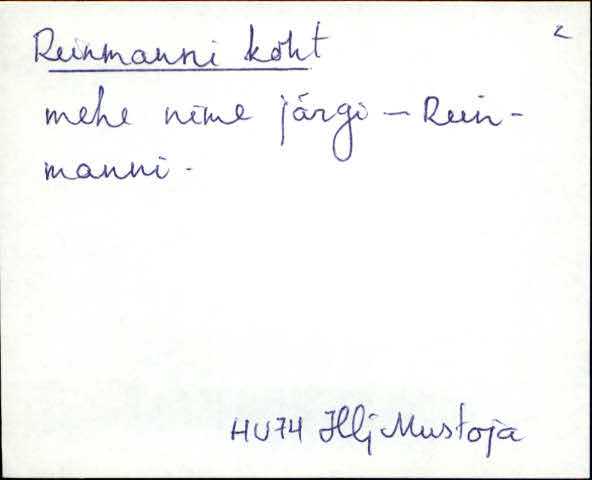 Reinmanni koht
2
mehe nime järgi – Rein-
manni.
HU74 Ilj Mustoja